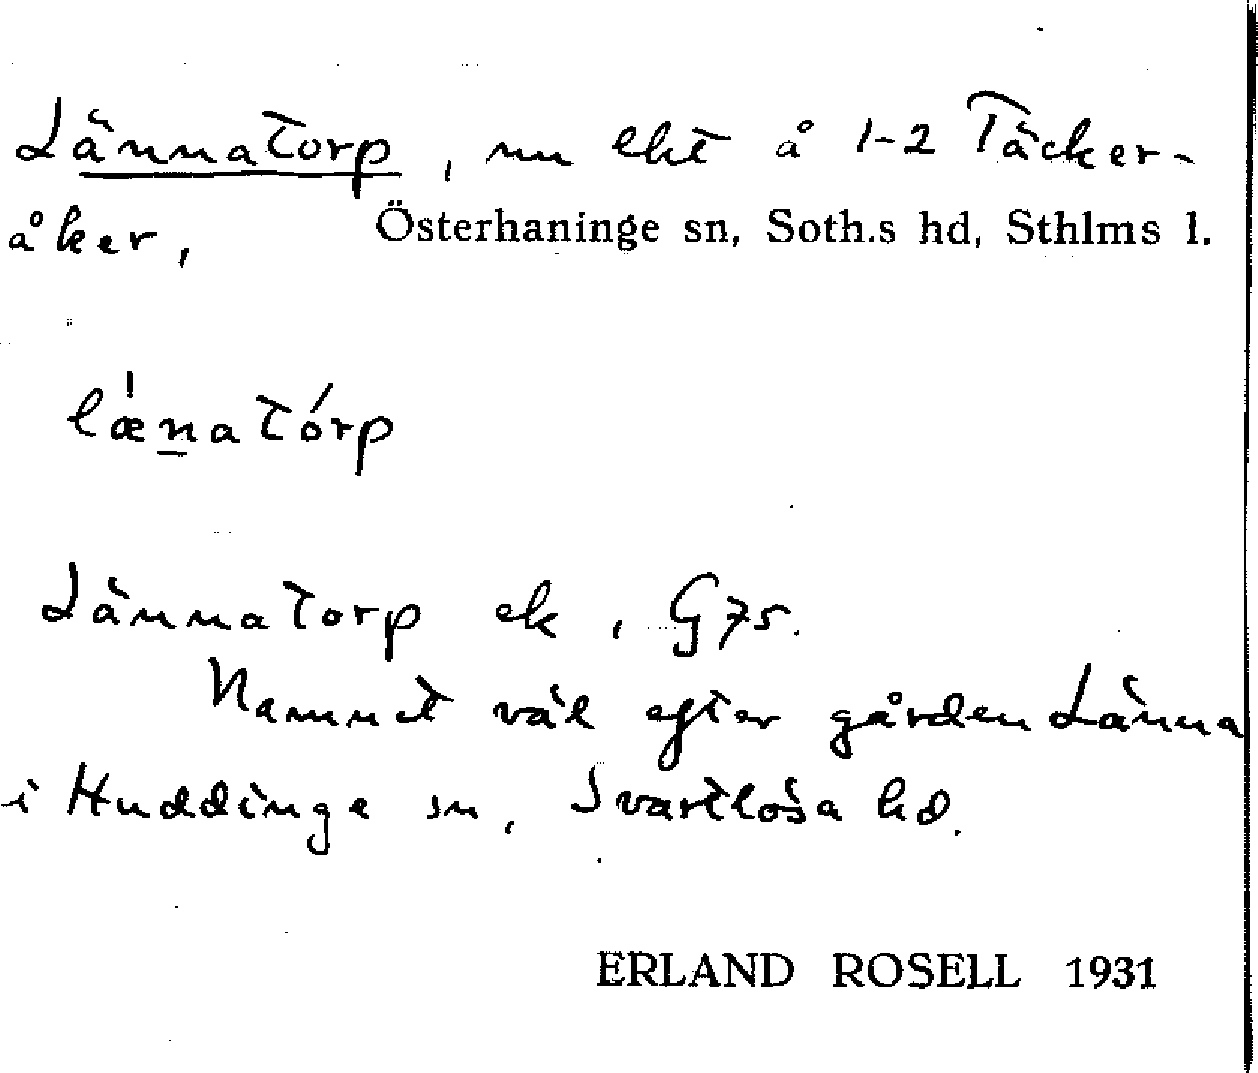 Lännatorp, nu ekt å 1-2 Täcker-
åker, Österhaninge sn, Soth.s hd, Sthlms l.
lænatórp
Lännatorp ek, G75.
Namnet väl efter gården Länna
i Huddinge sn, Svartlösa hd.
ERLAND ROSELL 1931